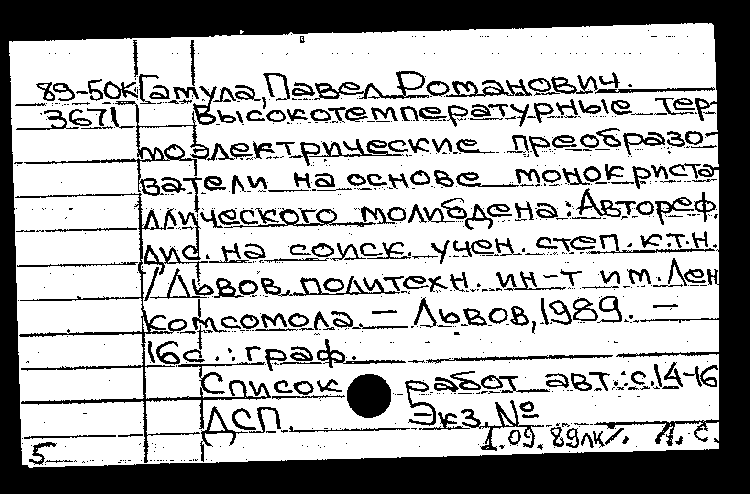 89-50к Гамула, Павел Романович.
3671 Высокотемпературные тер-
моэлектрические преобразо-
ватели на основе монокриста-
ллического молибдена: Автореф.
дис. на соиск. учен. степ. к.т.н.
/ Львов. политехн. ин-т им. Лен
комсомола. — Львов, 1989. —
16с.: граф.
Список работ авт.: с.14-16
ДСП. Экз. №
5 1.09.89 Л. С.